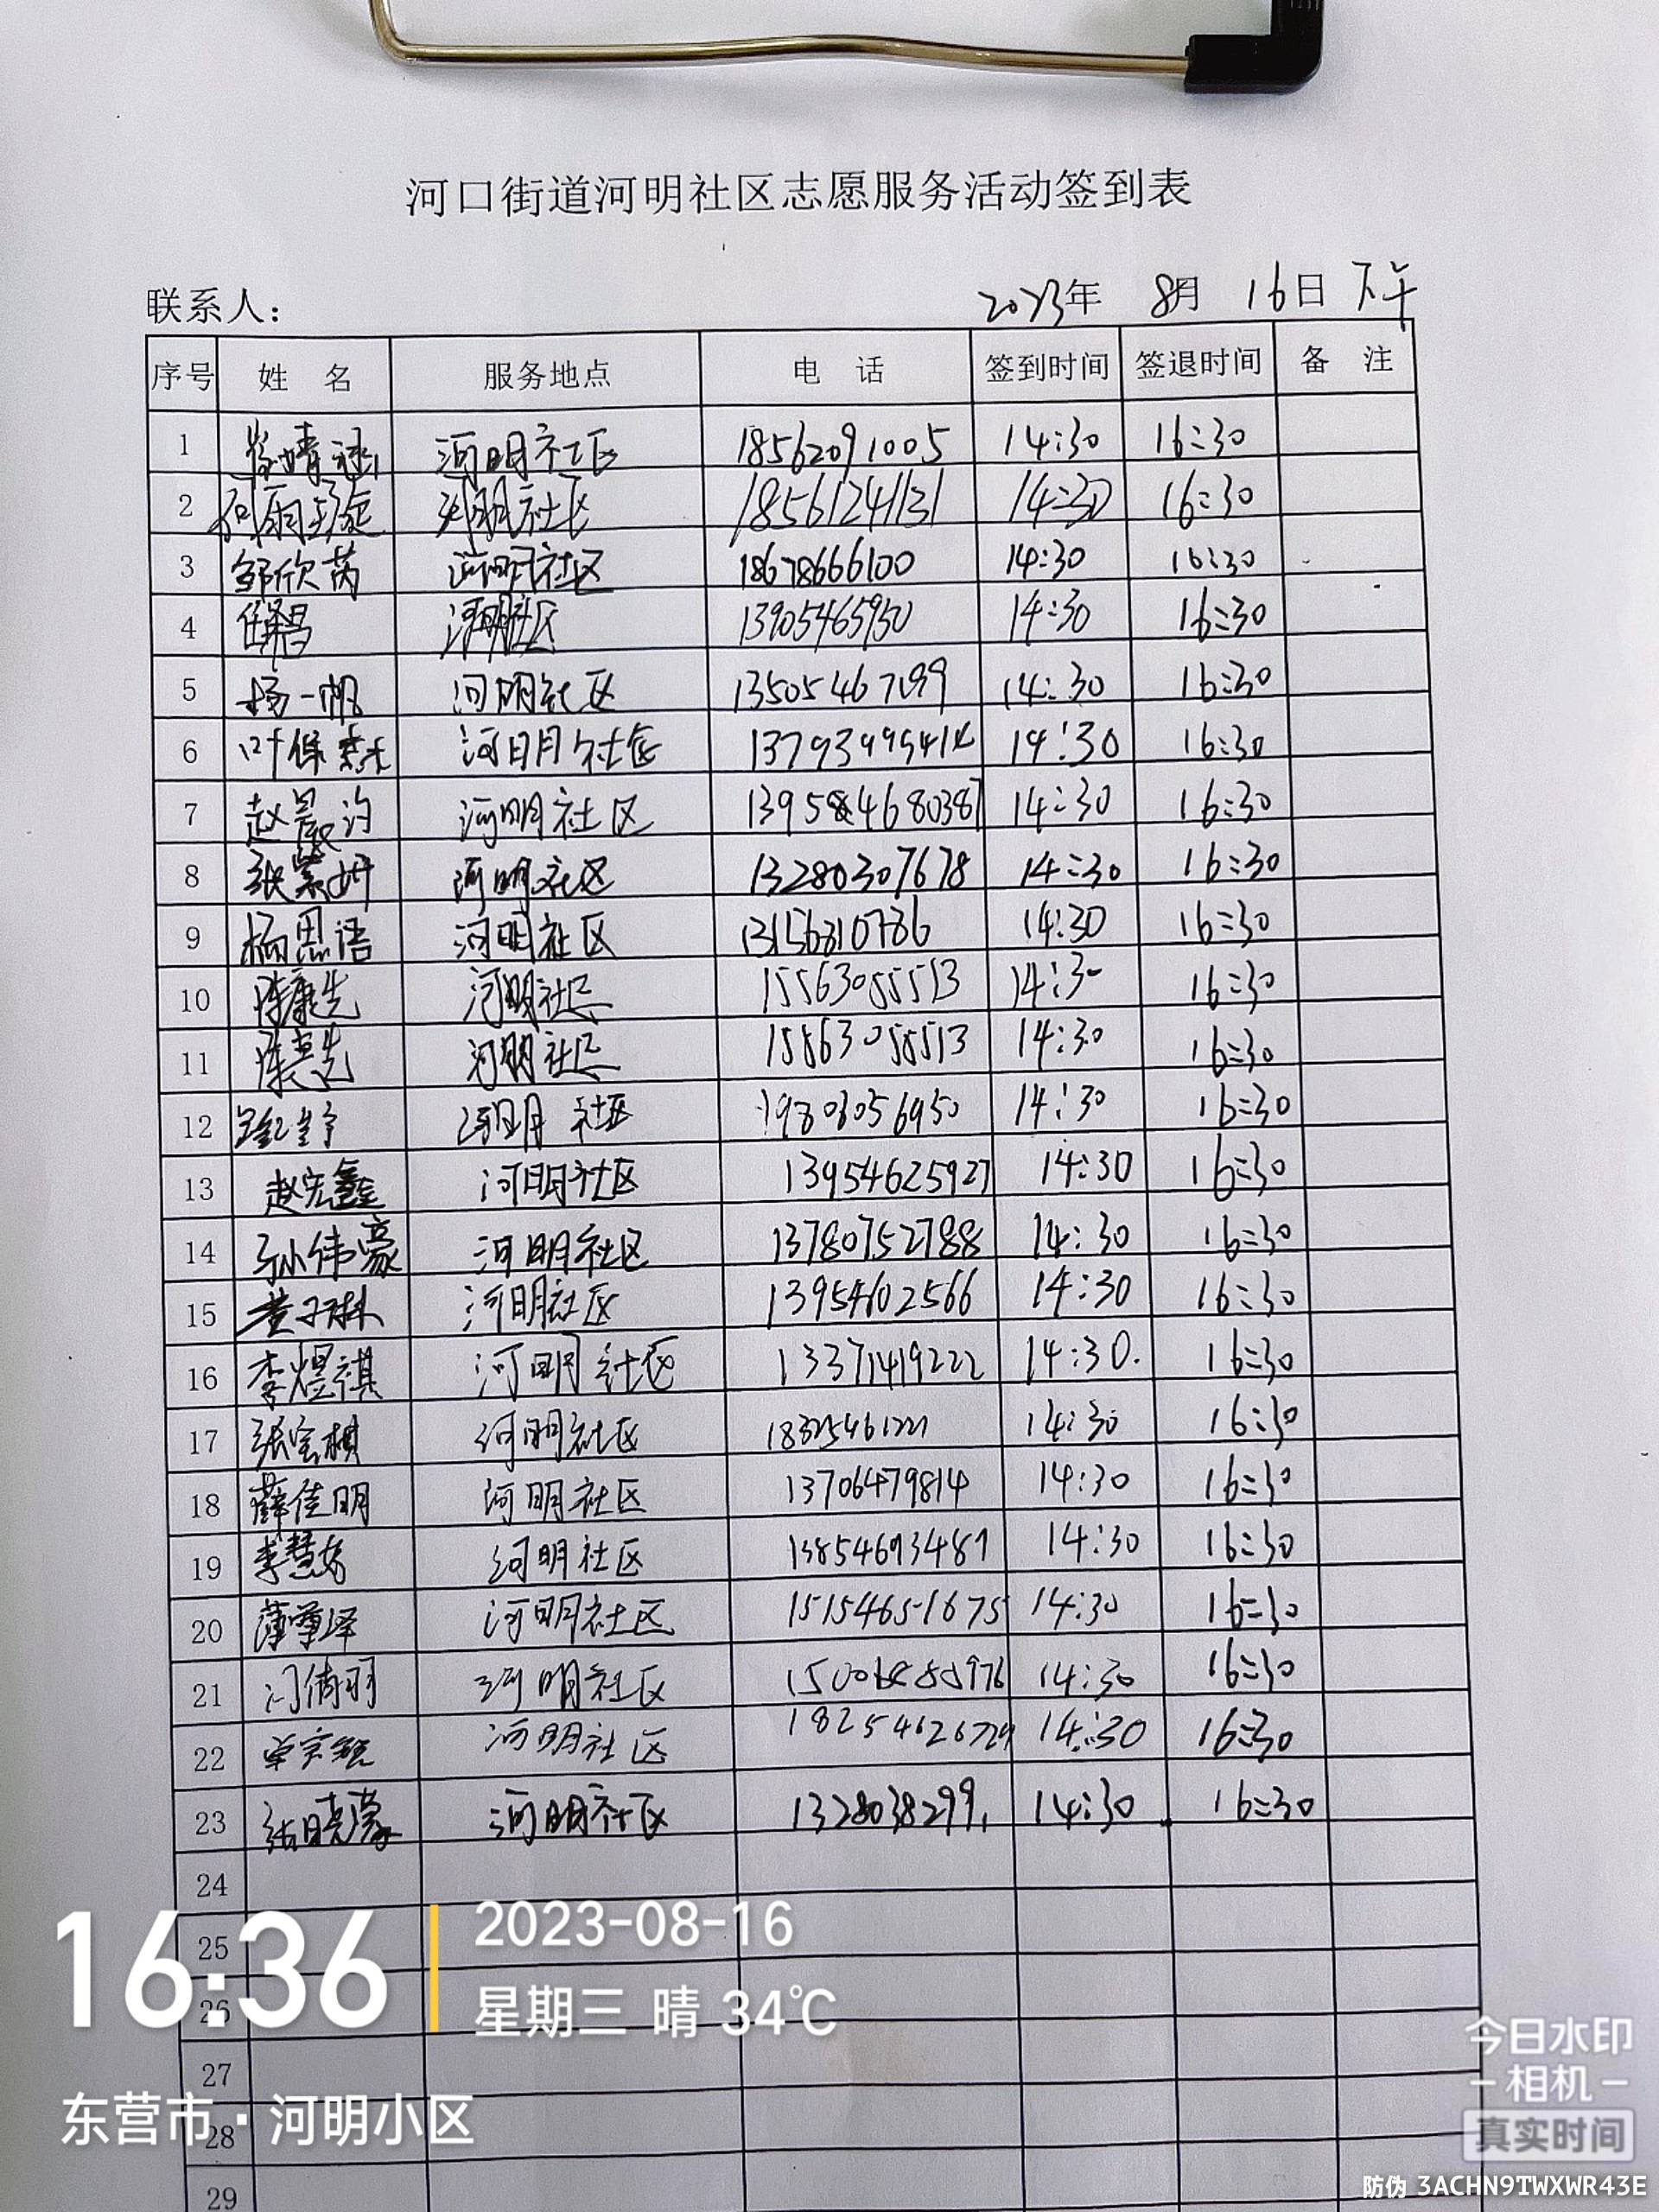 河口街道河明社区志愿服务活动签到表
联系人： 2023年 8月 16日 下午
序号 姓 名 服务地点 电 话 签到时间 签退时间 备 注
1 河明社区 18562091005 14:30 16:30
2 河明社区 18561241131 14:30 16:30
3 邹欣芮 河明社区 18678666100 14:30 16:30
4 河明社区 13905465930 14:30 16:30
5 杨一帆 河明社区 14:30 16:30
6 河明社区 14:30 16:30
7 赵晨汐 河明社区 14:30 16:30
8 张紫妍 河明社区 13280307678 14:30 16:30
9 杨思语 河明社区 13156810786 14:30 16:30
10 陈康先 河明社区 15563055513 14:30 16:30
11 河明社区 15563055513 14:30 16:30
12 河明社区 14:30 16:30
13 赵宏鑫 河明社区 13954625927 14:30 16:30
14 孙伟豪 河明社区 13780752788 14:30 16:30
15 黄子琳 河明社区 13954602566 14:30 16:30
16 李煜祺 河明社区 13371419222 14:30. 16:30
17 河明社区 18325461221 14:30 16:30
18 薛佳明 河明社区 13706479814 14:30 16:30
19 河明社区 13854693487 14:30 16:30
20 河明社区 15154651675 14:30 16:30
21 闫倩羽 河明社区 14:30 16:30
22 河明社区 18254626729 14:30 16:30
23 张晓蒙 河明社区 14:30 16:30
24
25
26
27
28
29
16:36
2023-08-16
星期三 晴 34℃
东营市·河明小区
今日水印
-相机-
真实时间
防伪 3ACHN9TWXWR43E